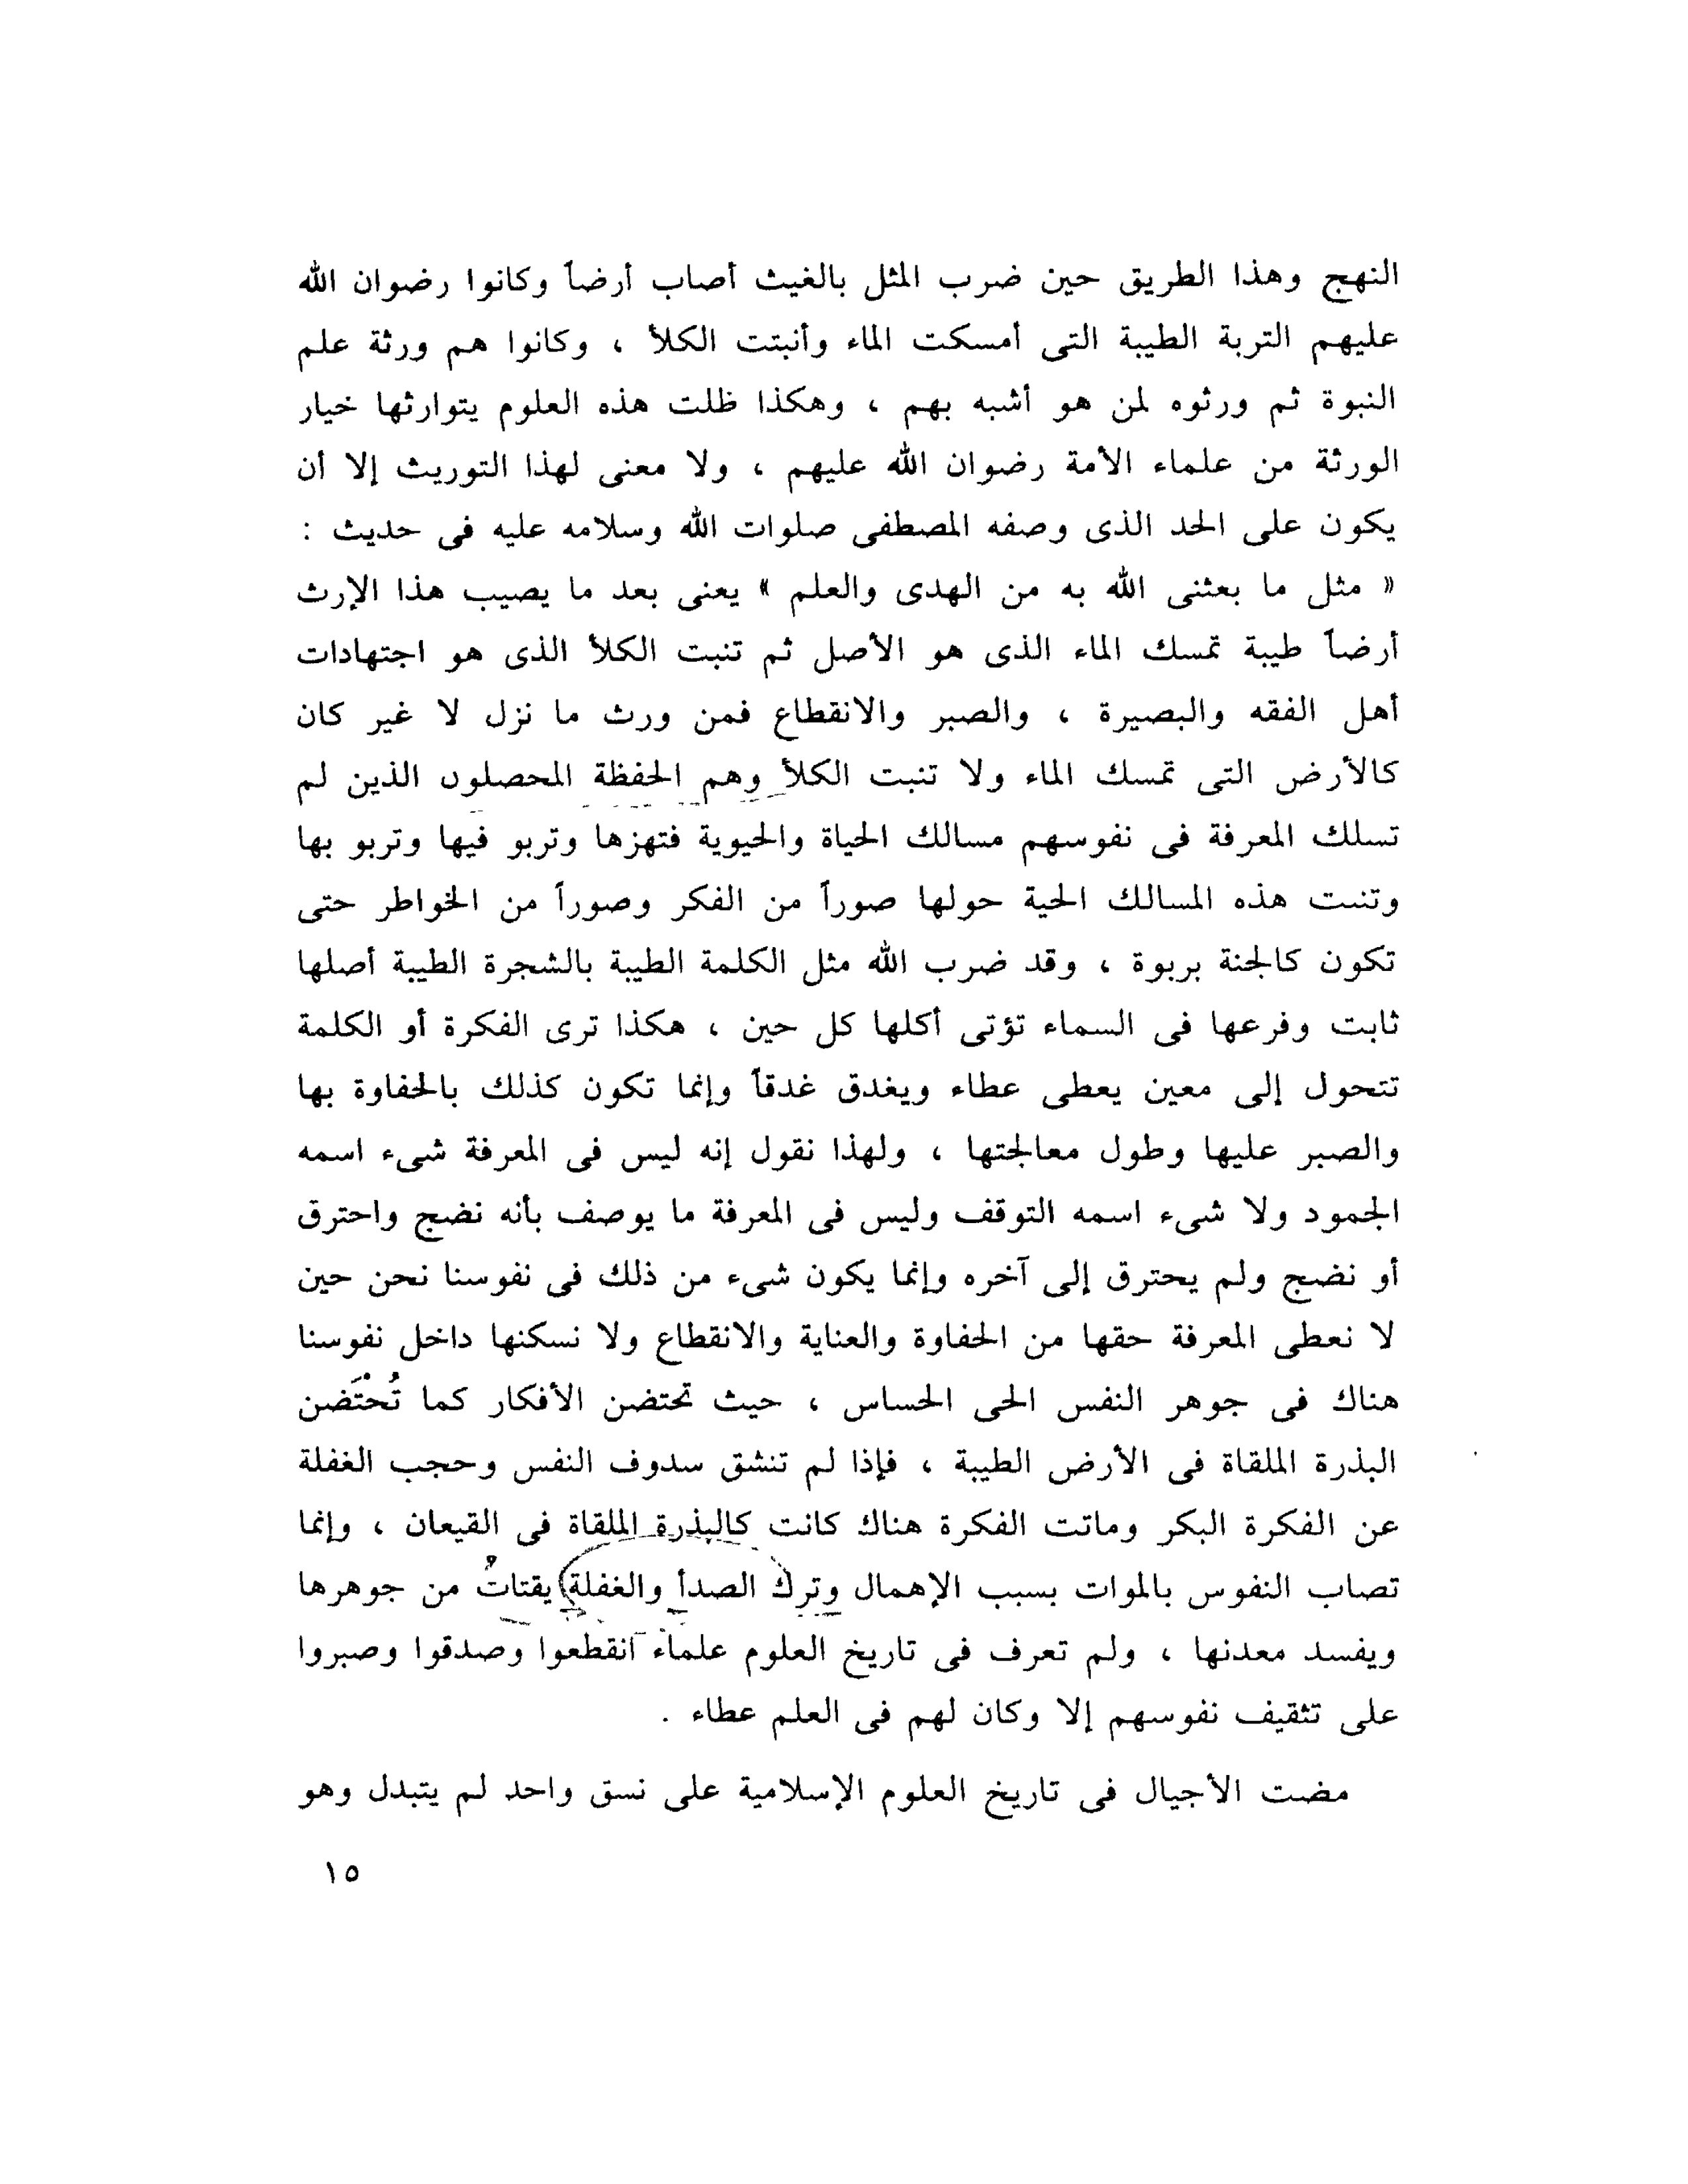 النهج وهذا الطريق حين ضرب المثل بالغيث أصاب أرضاً وكانوا رضوان الله
عليهم التربة الطيبة التى أمسكت الماء وأنبتت الكلأ ، وكانوا هم ورثة علم
النبوة ثم ورثوه لمن هو أشبه بهم ، وهكذا ظلت هذه العلوم يتوارثها خيار
الورثة من علماء الأمة رضوان الله عليهم ، ولا معنى لهذا التوريث إلا أن
يكون على الحد الذى وصفه المصطفى صلوات الله وسلامه عليه فى حديث :
« مثل ما بعثنى الله به من الهدى والعلم » يعنى بعد ما يصيب هذا الإرث
أرضاً طيبة تمسك الماء الذى هو الأصل ثم تنبت الكلأ الذى هو اجتهادات
أهل الفقه والبصيرة ، والصبر والانقطاع فمن ورث ما نزل لا غير كان
كالأرض التى تمسك الماء ولا تنبت الكلأ وهم الحفظة المحصلون الذين لم
تسلك المعرفة فى نفوسهم مسالك الحياة والحيوية فتهزها وتربو فيها وتربو بها
وتنبت هذه المسالك الحية حولها صوراً من الفكر وصوراً من الخواطر حتى
تكون كالجنة بربوة ، وقد ضرب الله مثل الكلمة الطيبة بالشجرة الطيبة أصلها
ثابت وفرعها فى السماء تؤتى أكلها كل حين ، هكذا ترى الفكرة أو الكلمة
تتحول إلى معين يعطى عطاء ويغدق غدقاً وإنما تكون كذلك بالحفاوة بها
والصبر عليها وطول معالجتها ، ولهذا نقول إنه ليس فى المعرفة شىء اسمه
الجمود ولا شىء اسمه التوقف وليس فى المعرفة ما يوصف بأنه نضج واحترق
أو نضج ولم يحترق إلى آخره وإنما يكون شىء من ذلك فى نفوسنا نحن حين
لا نعطى المعرفة حقها من الحفاوة والعناية والانقطاع ولا نسكنها داخل نفوسنا
هناك فى جوهر النفس الحى الحساس ، حيث تحتضن الأفكار كما تُحْتَضن
البذرة الملقاة فى الأرض الطيبة ، فإذا لم تنشق سدوف النفس وحجب الغفلة
عن الفكرة البكر وماتت الفكرة هناك كانت كالبذرة الملقاة فى القيعان ، وإنما
تصاب النفوس بالموات بسبب الإهمال وترك الصدأ والغفلة يقتاتُ من جوهرها
ويفسد معدنها ، ولم تعرف فى تاريخ العلوم علماء انقطعوا وصدقوا وصبروا
على تثقيف نفوسهم إلا وكان لهم فى العلم عطاء .
مضت الأجيال فى تاريخ العلوم الإسلامية على نسق واحد لم يتبدل وهو
١٥